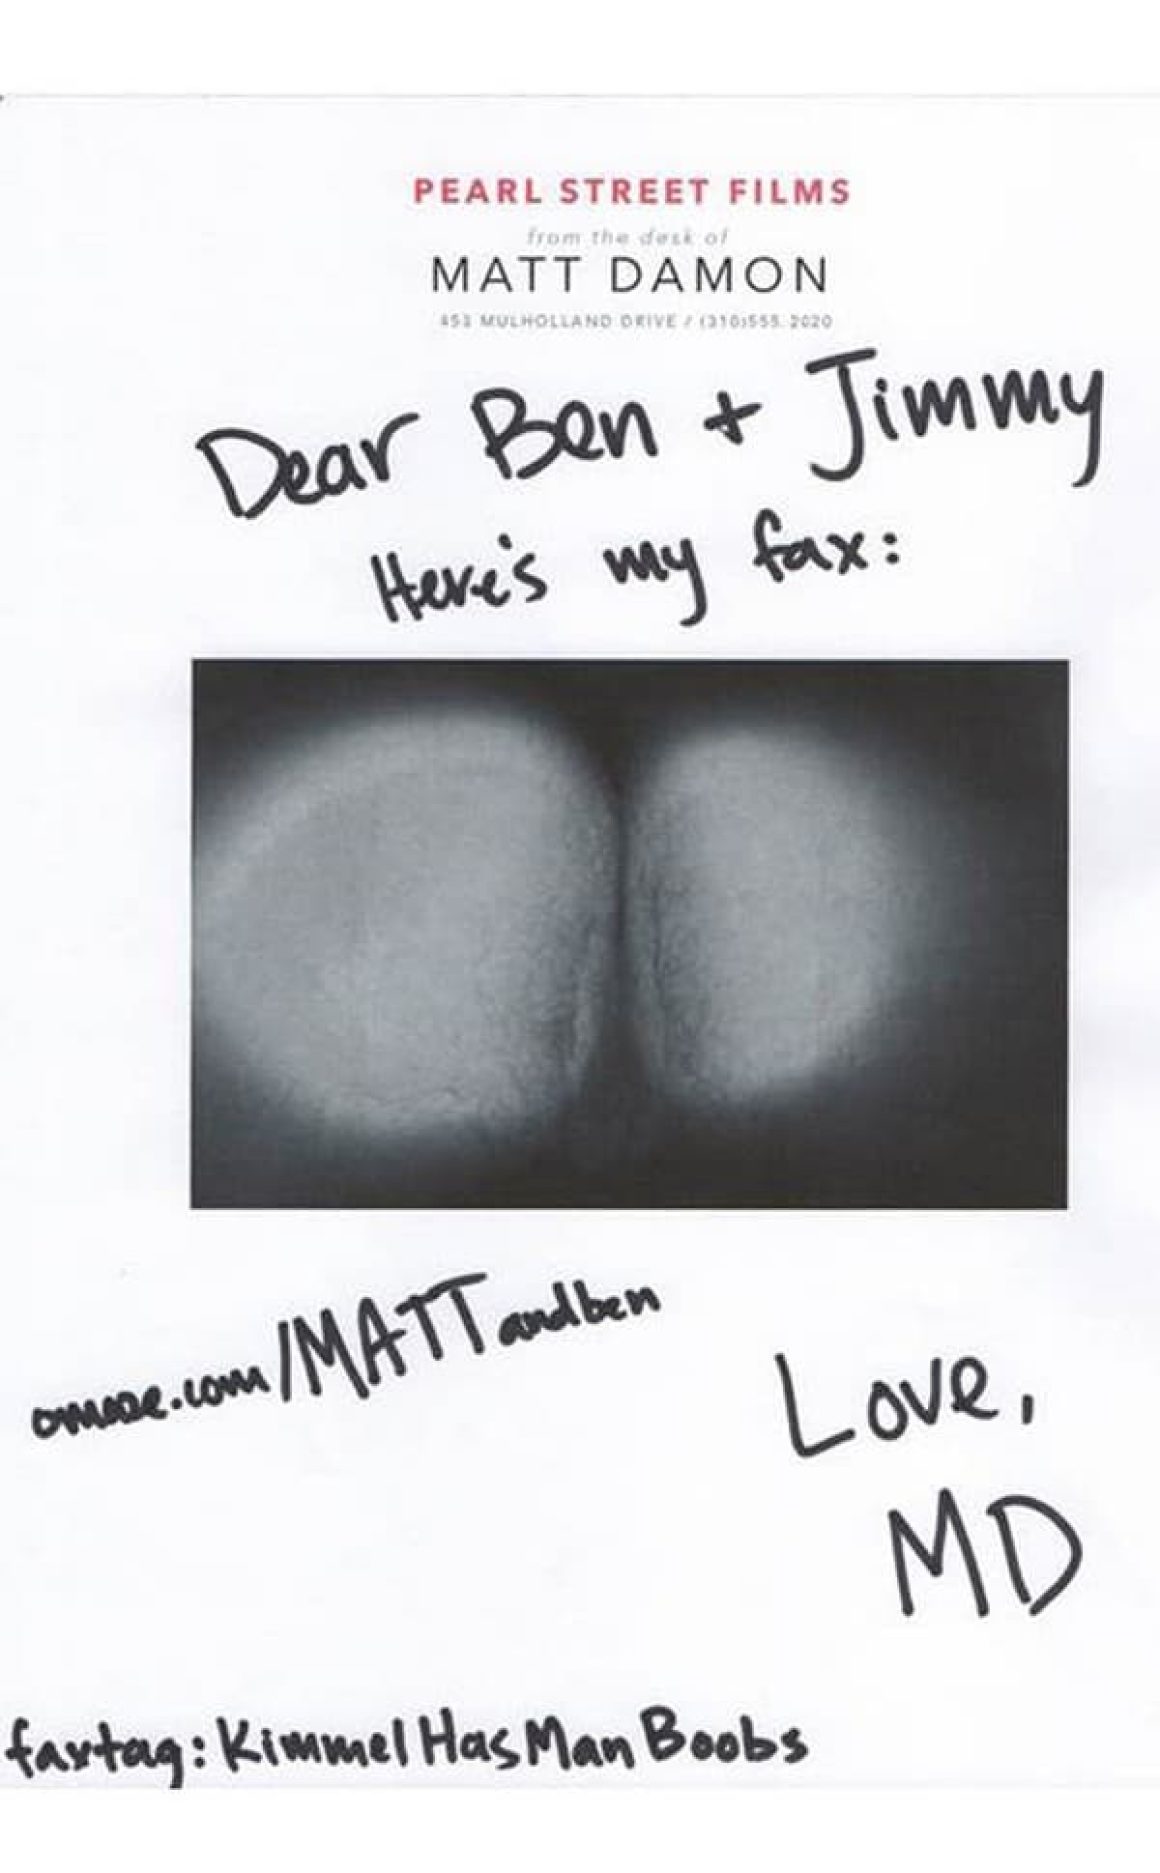 PEARL STREET FILMS
from the desk of
MATT DAMON
453 MULHOLLAND DRIVE / (310)555.2020
Dear Ben + Jimmy
Here's my fax:
omaze.com/MATTandben
Love,
MD
faxtag: KimmelHasManBoobs